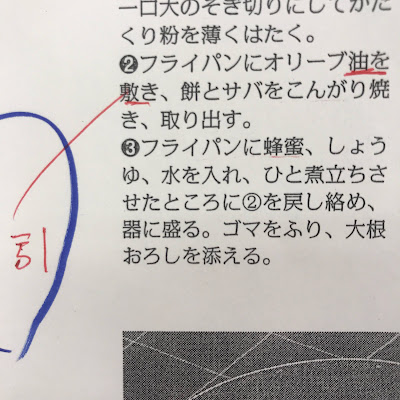 一口大のそぎ切りにしてかた
くり粉を薄くはたく。
❷フライパンにオリーブ油を
敷き、餅とサバをこんがり焼
き、取り出す。
❸フライパンに蜂蜜、しょう
ゆ、水を入れ、ひと煮立ちさ
せたところに②を戻し絡め、
器に盛る。ゴマをふり、大根
おろしを添える。
引